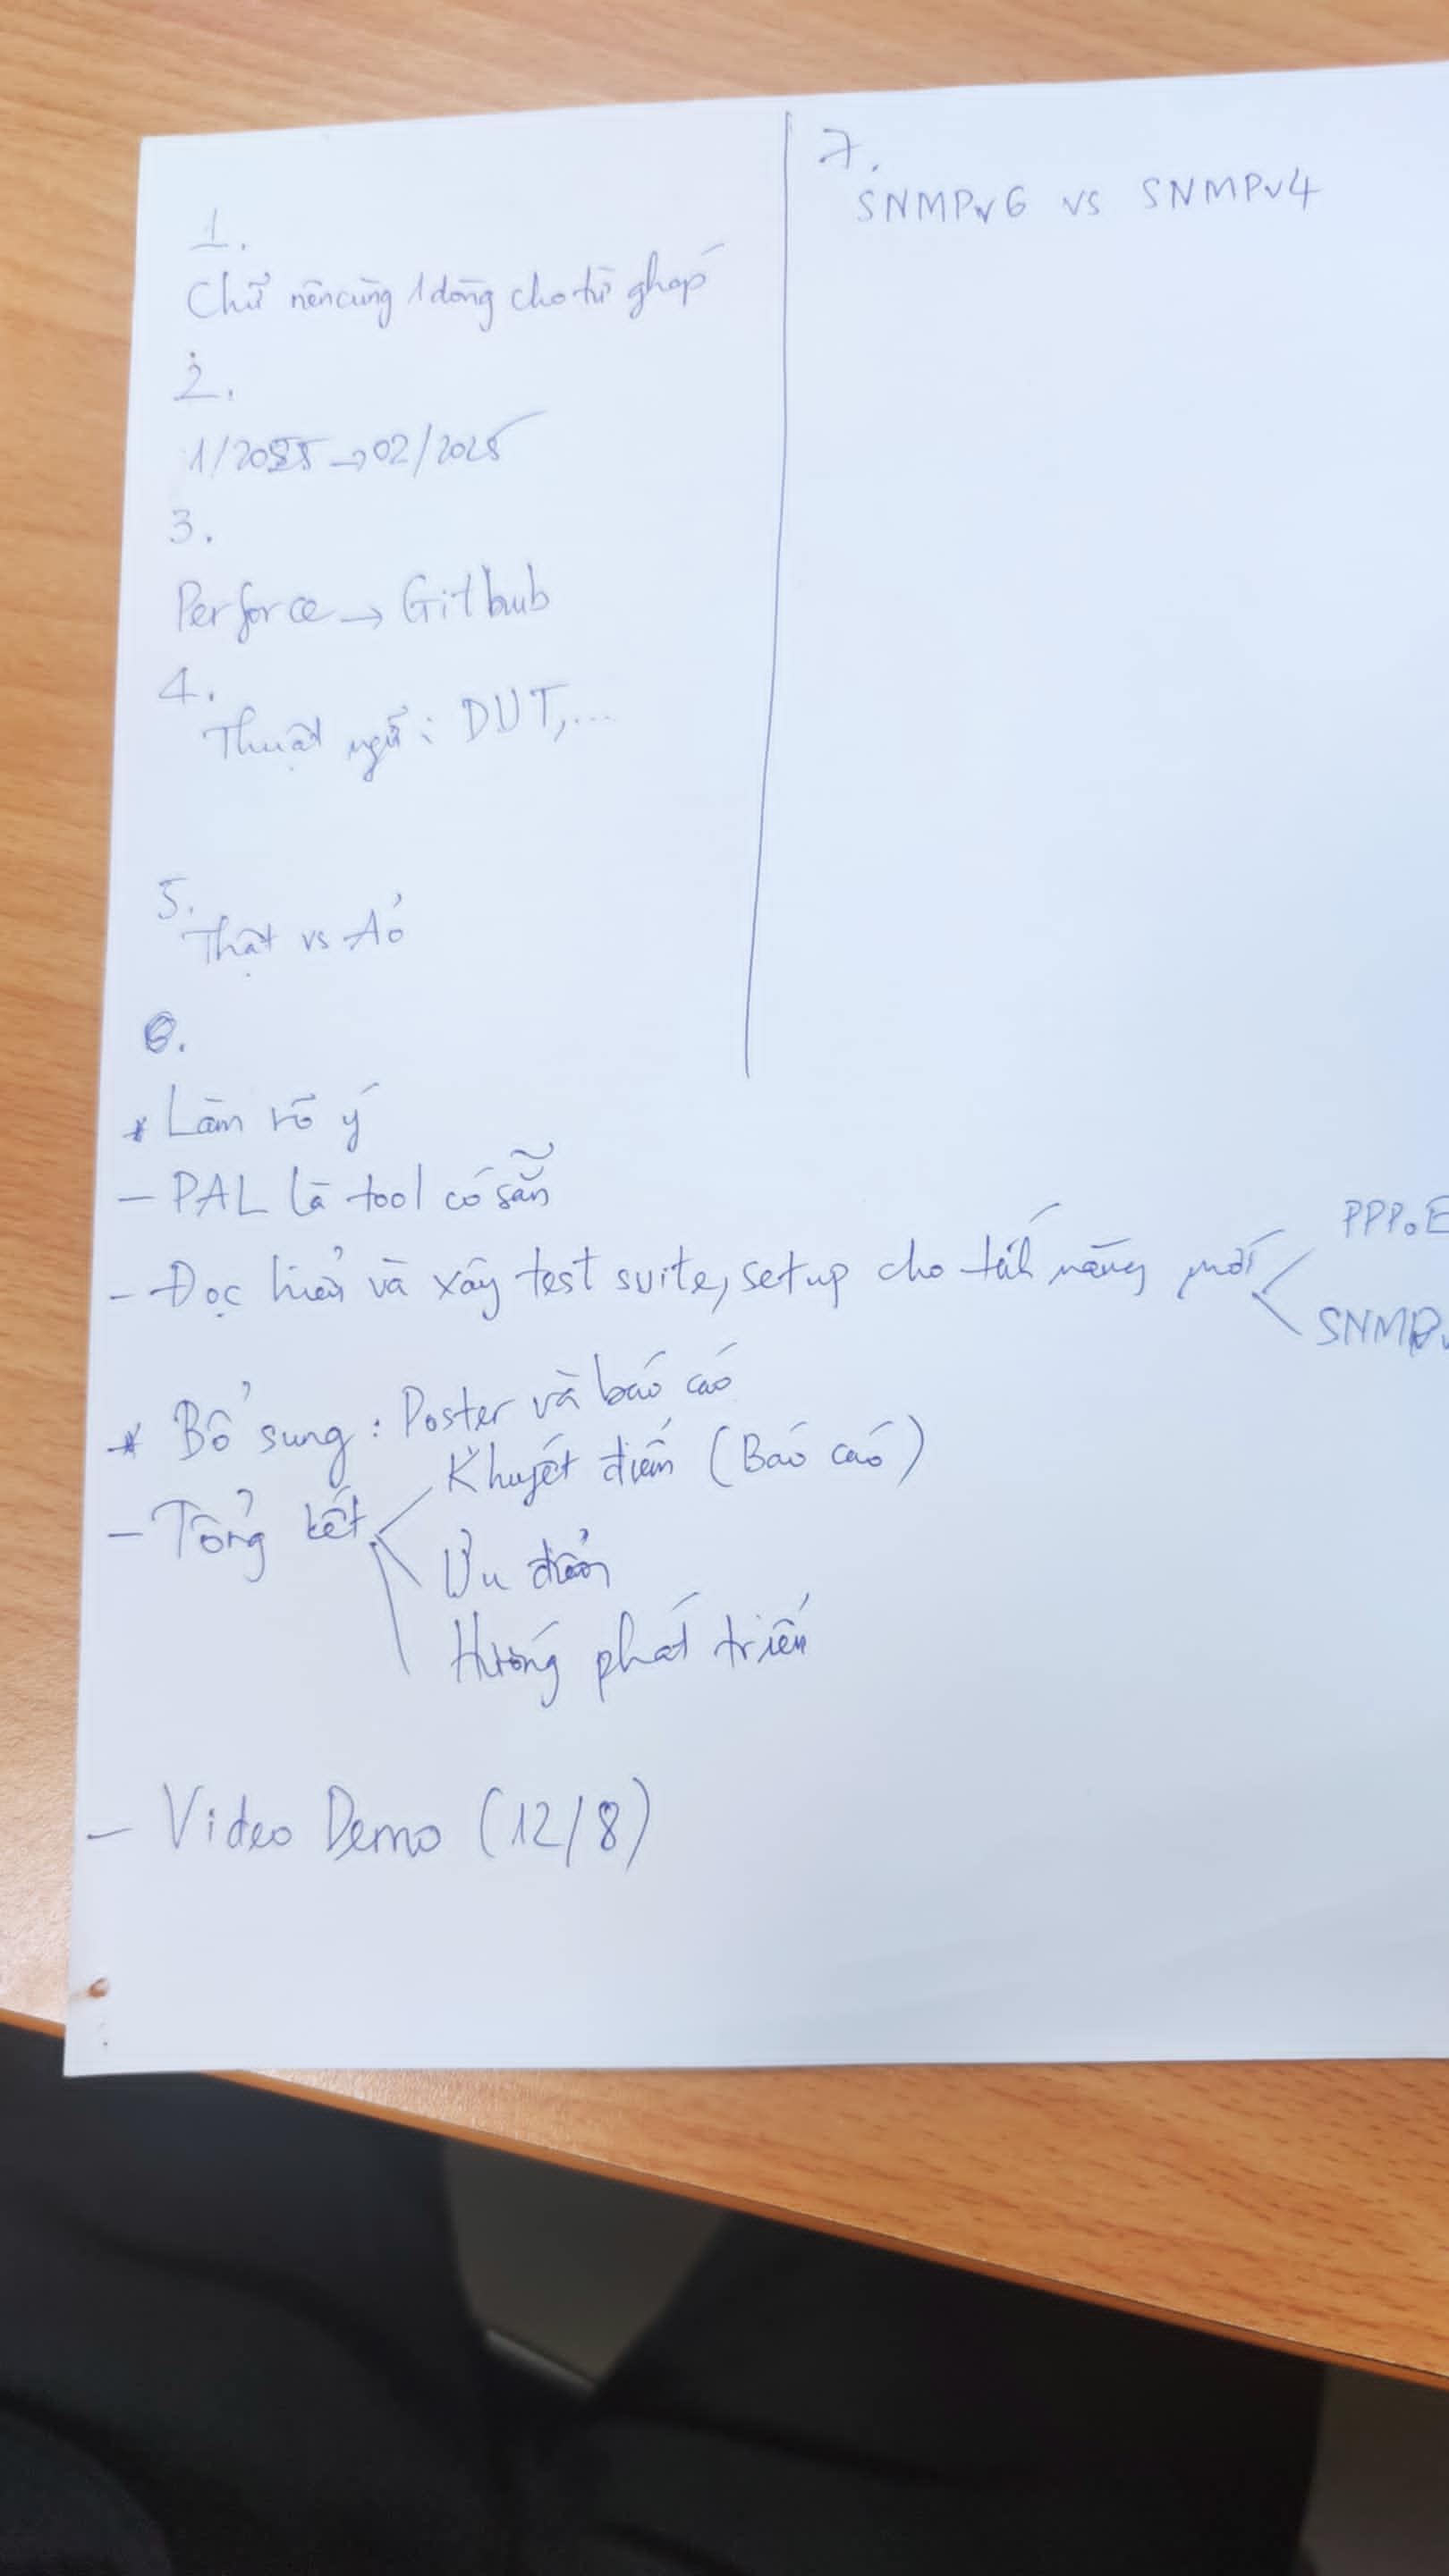 1.
Chữ nên cùng 1 dòng cho từ ghép
2.
1/2025 → 02/2025
3.
Perforce → Github
4.
Thuật ngữ: DUT,...
5.
Thật vs Ảo
6.
* Làm rõ ý
- PAL là tool có sẵn
- Đọc hiểu và xây test suite, setup cho tính năng mới
PPPoE
SNMPv
* Bổ sung: Poster và báo cáo
- Tổng kết
Khuyết điểm (Báo cáo)
Ưu điểm
Hướng phát triển
- Video Demo (12/8)
7.
SNMPv6 vs SNMPv4